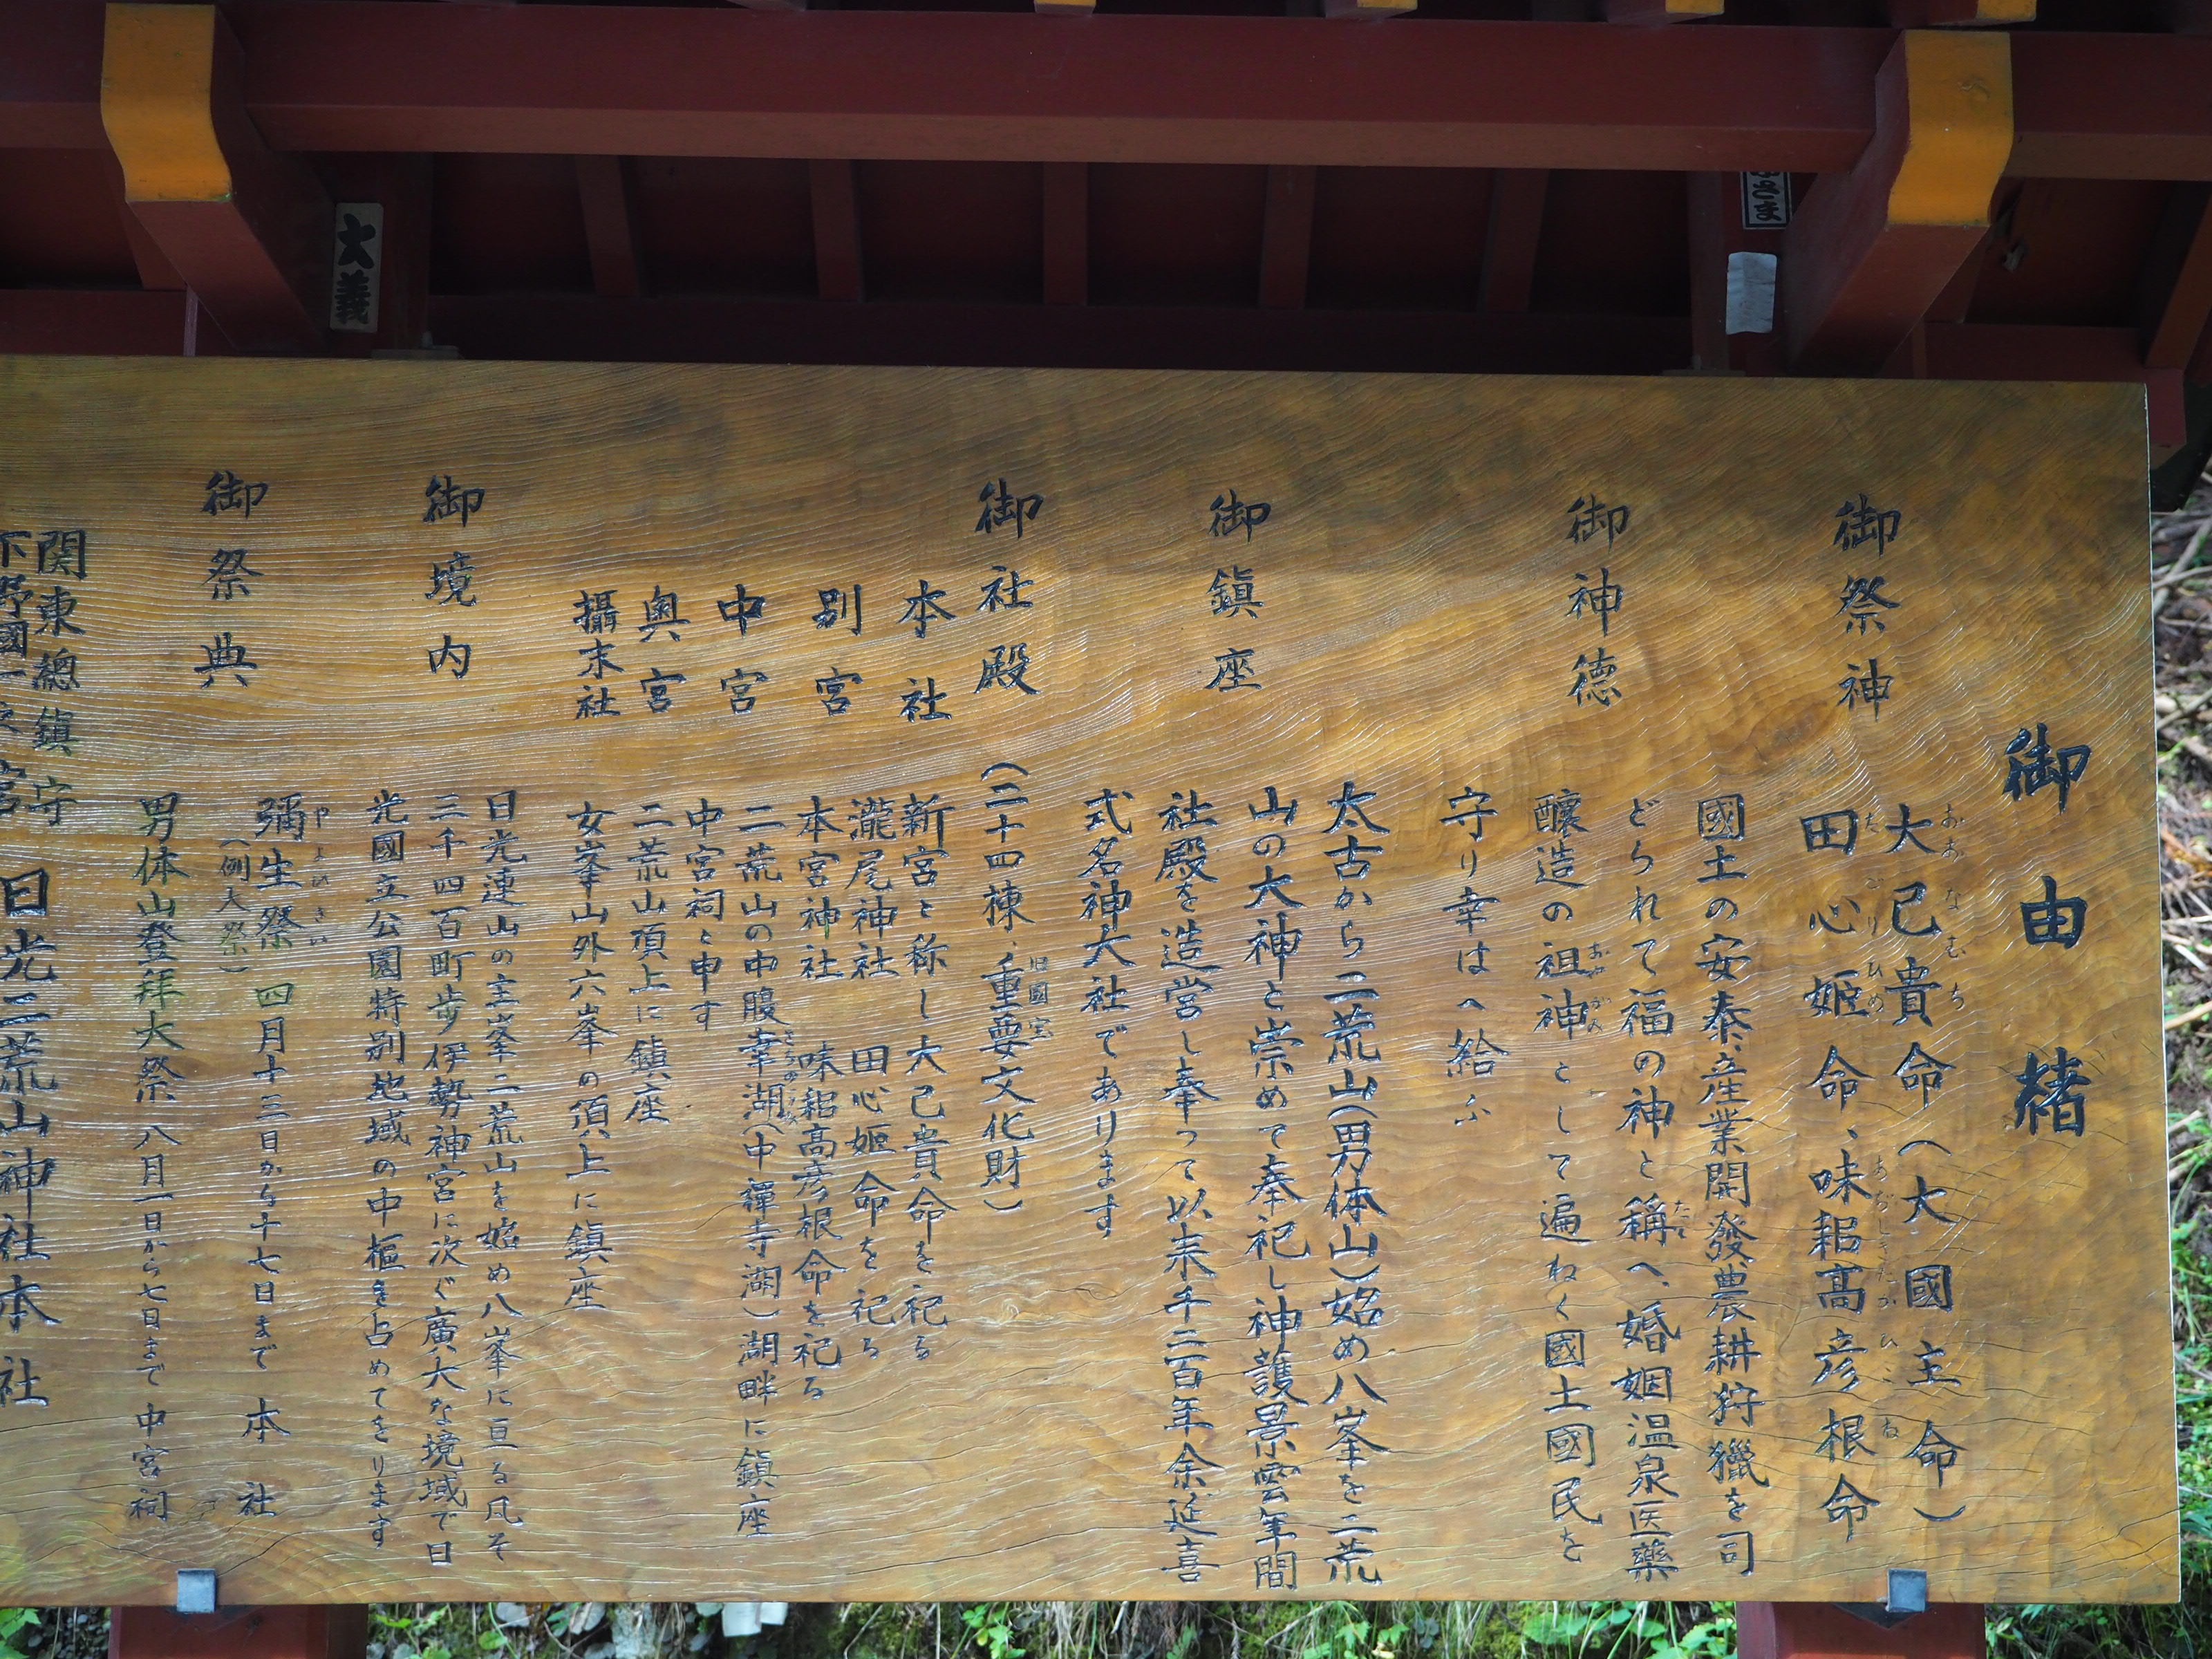 御由緒
御祭神
大己貴命(大國主命)
おおなむち
田心姫命、味耜高彦根命
たごりひめ
あぢしきたかひこね
御神徳
國土の安泰、産業開發農耕狩獵を司
どられて福の神と稱へ、婚姻温泉医藥
たた
醸造の祖神として遍ねく國土國民を
おやがみ
守り幸はへ給ふ
御鎮座
太古から二荒山(男体山)始め八峯を二荒
山の大神と崇めて奉祀し神護景雲年間
社殿を造営し奉つて以来千二百年余延喜
式名神大社であります
御社殿
(二十四棟、重要文化財)
旧國宝
本社
新宮と称し大己貴命を祀る
別宮
瀧尾神社 田心姫命を祀る
本宮神社 味耜高彦根命を祀る
中宮
二荒山の中腹幸湖(中禅寺湖)湖畔に鎮座
中宮祠と申す
奥宮
二荒山頂上に鎮座
攝末社
女峯山外六峯の頂上に鎮座
御境内
日光連山の主峯二荒山を始め八峯に亘る凡そ
三千四百町歩伊勢神宮に次ぐ廣大な境域で日
光國立公園特別地域の中樞を占めてをります
御祭典
やよいさい
彌生祭 四月十三日から十七日まで 本社
(例大祭)
男体山登拜大祭 八月一日から七日まで 中宮祠
関東總鎮守
下野國一之宮
日光二荒山神社本社
大義